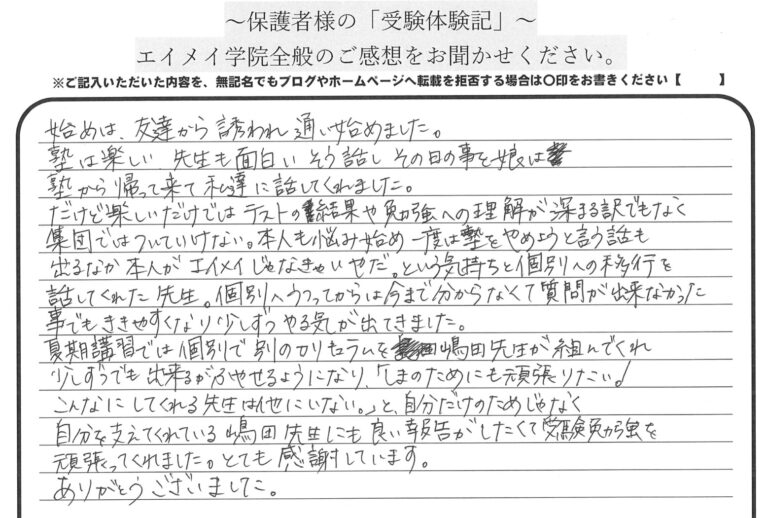 ～保護者様の「受験体験記」～
エイメイ学院全般のご感想をお聞かせください。
※ご記入いただいた内容を、無記名でもブログやホームページへ転載を拒否する場合は〇印をお書きください【　　】
始めは、友達から誘われ通い始めました。
塾は楽しい 先生も面白い そう話し その日の事を娘は
塾から帰って来て私達に話してくれました。
だけど楽しいだけでは テストの結果や勉強への理解が深まる訳でもなく
集団ではついていけない。本人も悩み始め一度は塾をやめようと言う話も
出るなか本人がエイメイじゃなきゃいやだ。という気持ちと個別への移行を
話してくれた先生。個別へうつってからは今まで分からなくて質問が出来なかった
事でもききやすくなり少しずつやる気が出てきました。
夏期講習では個別で別のカリキュラムを嶋田先生が組んでくれ
少しずつでも出来るがふやせるようになり、「しまのためにも頑張りたい！
こんなにしてくれる先生は他にいない。」と、自分だけのためじゃなく
自分を支えてくれている嶋田先生にも良い報告がしたくて受験勉強を
頑張ってくれました。とても感謝しています。
ありがとうございました。